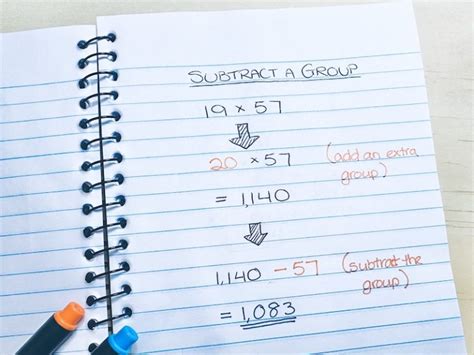 SUBTRACT A GROUP
19 × 57
20 × 57 (add an extra
group)
= 1,140
1,140 - 57 (subtract the
group)
= 1,083